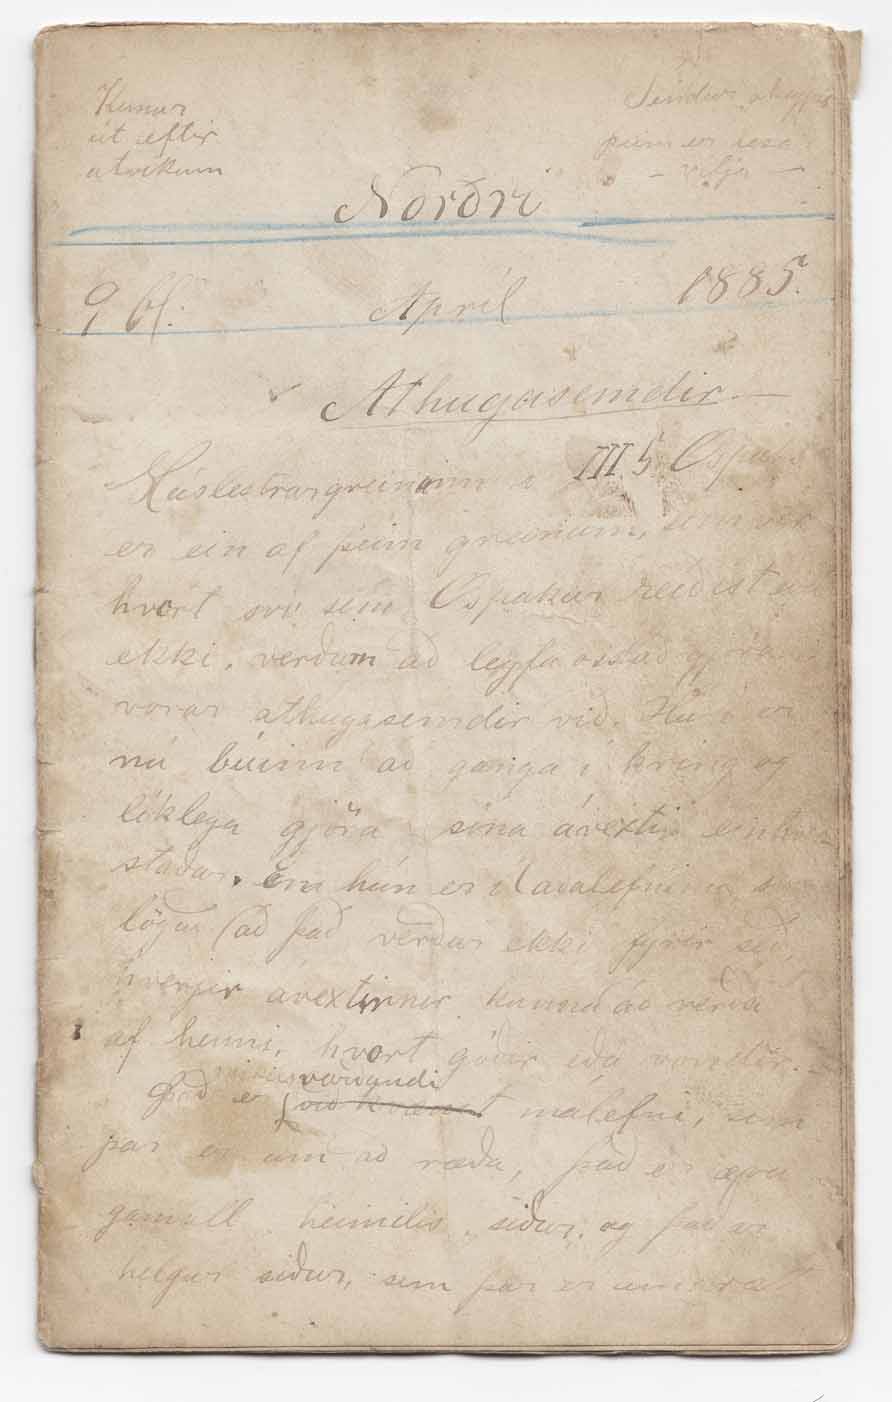 Kemur
út eftir
atvikum
Sendur
þeim er lesa
- vilja -
Norðri
9 bl. Apríl 1885.
Athugasemdir. —
Húslestrargreininn í III 5 Óspak
er ein af þeim greinum, sem vér
hvort svo sem Óspakur reiðist eða
ekki, verðum að leyfa oss að gjöra
vorar athugasemdir við. Hún er
nú búinn að ganga í kring og
líklega gjöra sína ávexti einhvers
staðar, em hún er í aðalefninu
löguð að það verður ekki fyrir séð,
hverjir ávextirnir kunna að verða
af henni, hvort góðir eða vondir. -
varðandi
Það er við kvæmt málefni, sem
þar er um að ræða, það er æfa
gamall heimilis siður, og það er
helgur siður, sem þar er um rætt